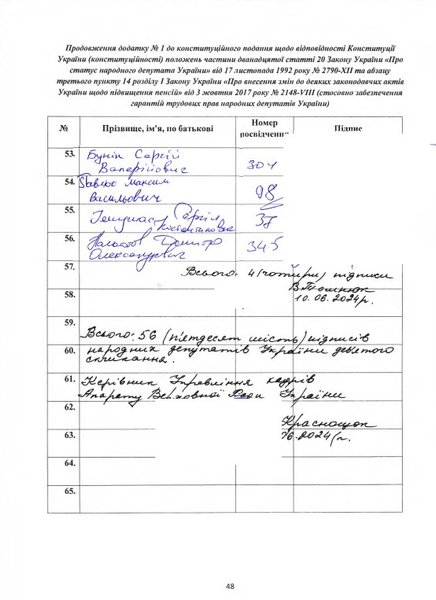 Продовження додатку № 1 до конституційного подання щодо відповідності Конституції
України (конституційності) положень частини дванадцятої статті 20 Закону України «Про
статус народного депутата України» від 17 листопада 1992 року № 2790-XII та абзацу
третього пункту 14 розділу I Закону України «Про внесення змін до деяких законодавчих актів
України щодо підвищення пенсій» від 3 жовтня 2017 року № 2148-VIII (стосовно забезпечення
гарантій трудових прав народних депутатів України)
№ Прізвище, ім'я, по батькові Номер посвідчення Підпис
53. Бунін Сергій
Валерійович 304
54. Павлюк Максим
Васильович 98
55. Сергій
Костянтинович 37
56. Дмитро
Олександрович 345
57. Всього: 4 (чотири) підписи
58. 10.06.2024р.
59. Всього: 56 (п'ятдесят шість) підписів
60. народних депутатів України дев'ятого
скликання.
61. Керівник Управління кадрів
Апарату Верховної Ради України
62. Краснощок
63. 2024р.
64.
65.
48